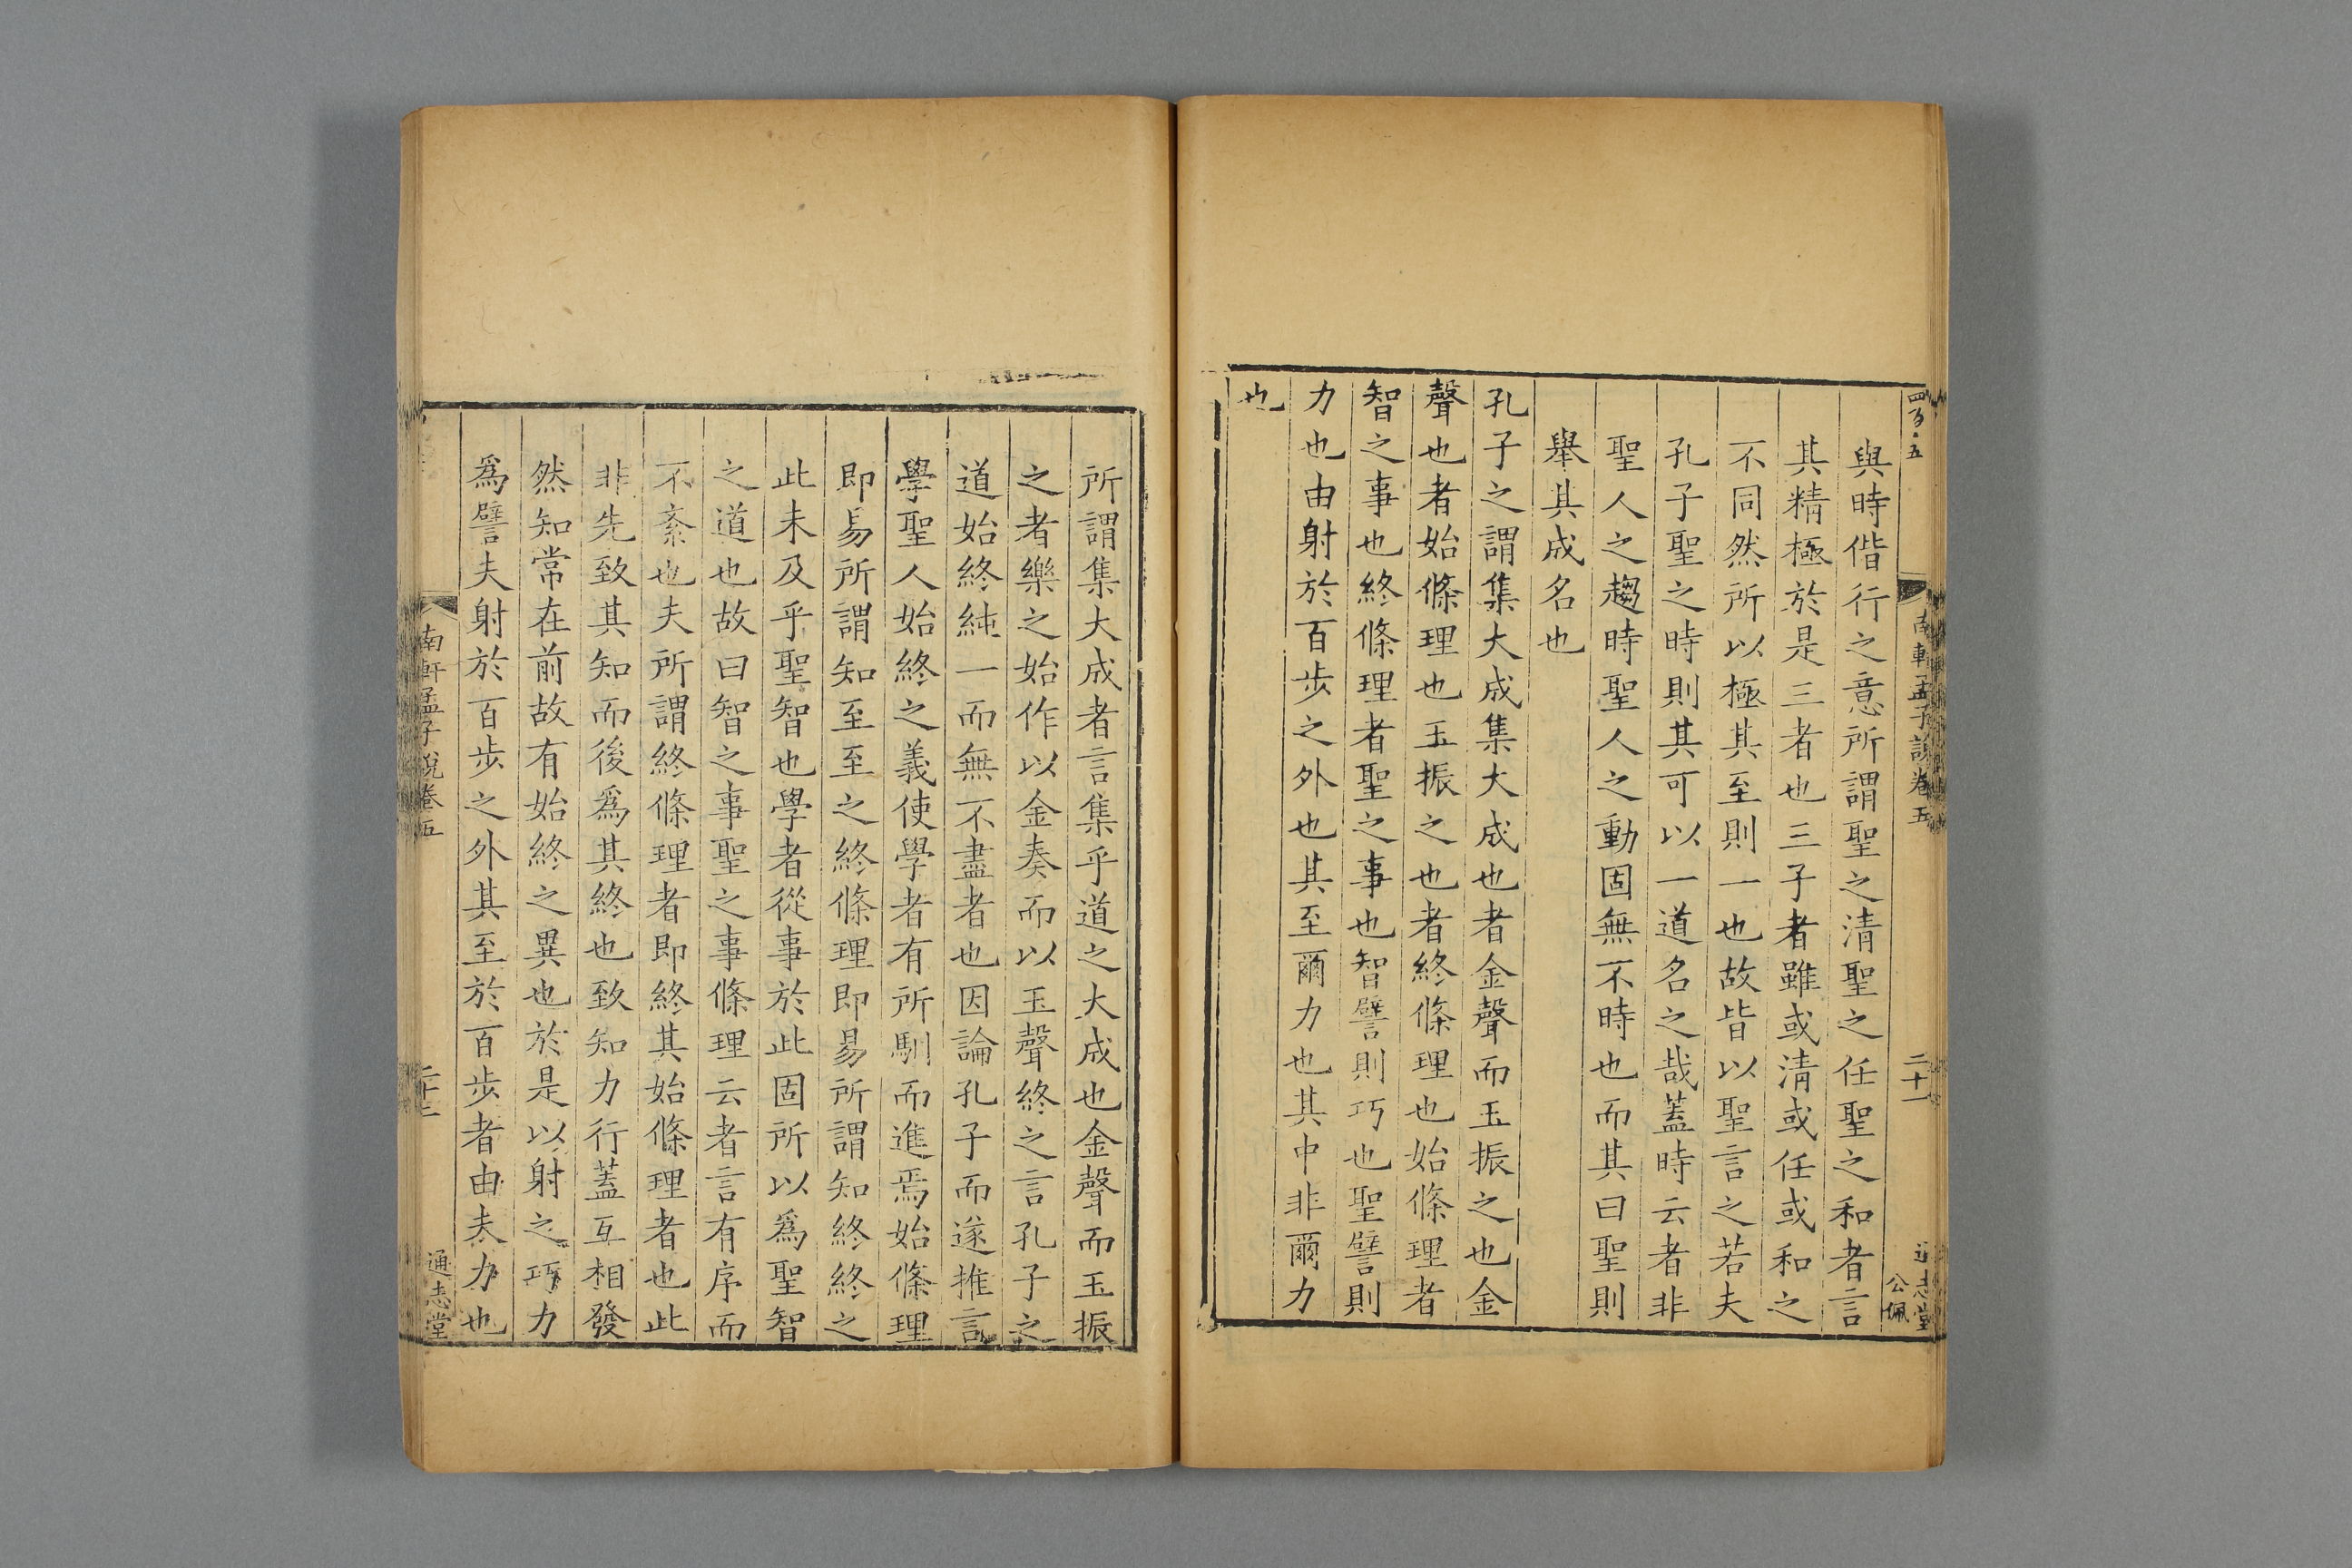 四百五
南軒孟子說卷五
二十一
通志堂
公佩
與時偕行之意所謂聖之清聖之任聖之和者言
其精極於是三者也三子者雖或清或任或和之
不同然所以極其至則一也故皆以聖言之若夫
孔子聖之時則其可以一道名之哉蓋時云者非
聖人之趨時聖人之動固無不時也而其曰聖則
舉其成名也
孔子之謂集大成集大成也者金聲而玉振之也金
聲也者始條理也玉振之也者終條理也始條理者
智之事也終條理者聖之事也智譬則巧也聖譬則
力也由射於百步之外也其至爾力也其中非爾力
也
所謂集大成者言集乎道之大成也金聲而玉振
之者樂之始作以金奏而以玉聲終之言孔子之
道始終純一而無不盡者也因論孔子而遂推言
學聖人始終之義使學者有所馴而進焉始條理
即易所謂知至至之終條理即易所謂知終終之
此未及乎聖智也學者從事於此固所以爲聖智
之道也故曰智之事聖之事條理云者言有序而
不紊也夫所謂終條理者即終其始條理者也此
非先致其知而後爲其終也致知力行蓋互相發
然知常在前故有始終之異也於是以射之巧力
爲譬夫射於百步之外其至於百步者由夫力也
南軒孟子說卷五
通志堂